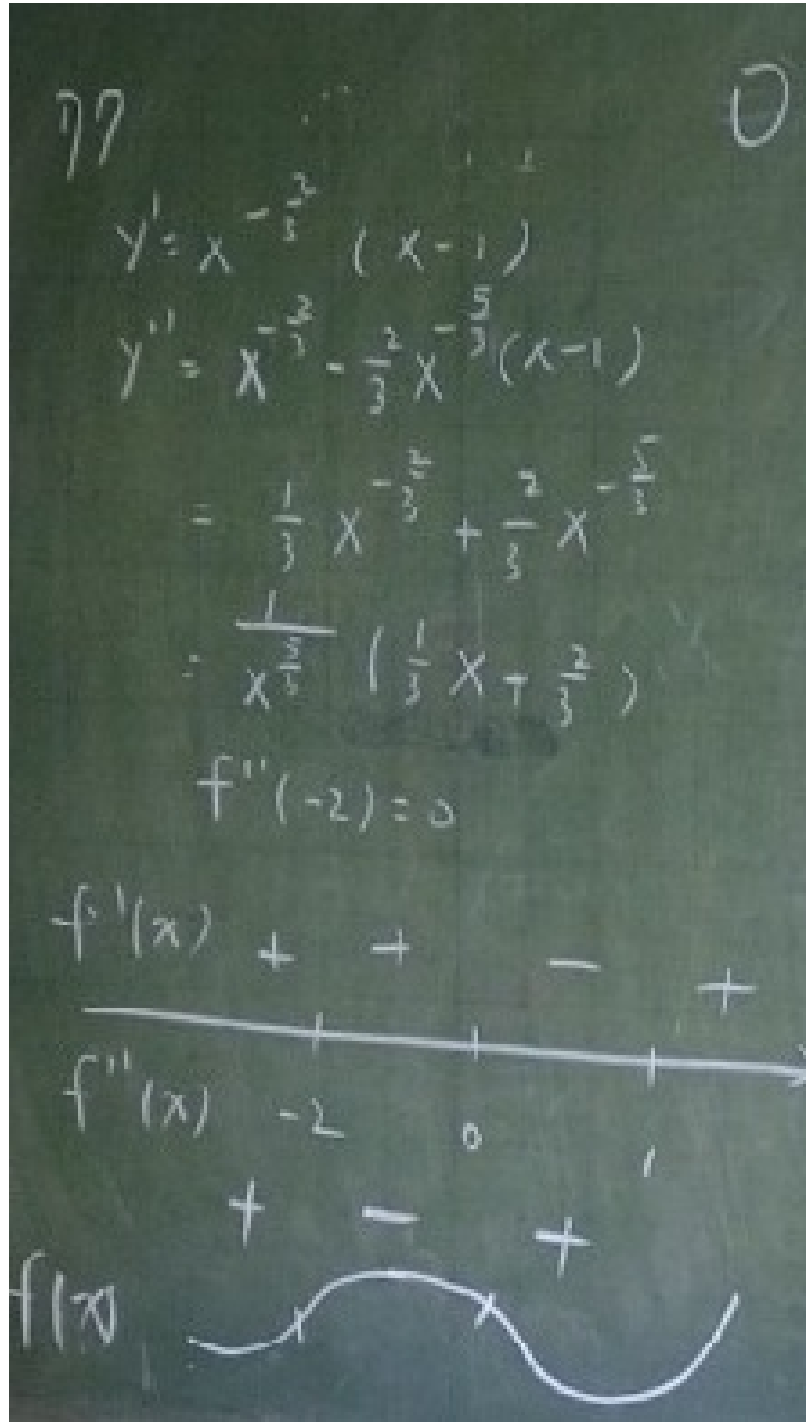 77 0
y' = x^{-\frac{2}{3}} (x-1)
y'' = x^{-\frac{2}{3}} - \frac{2}{3} x^{-\frac{5}{3}} (x-1)
= \frac{1}{3} x^{-\frac{2}{3}} + \frac{2}{3} x^{-\frac{5}{3}}
= \frac{1}{x^{\frac{5}{3}}} (\frac{1}{3} x + \frac{2}{3})
f''(-2) = 0
f'(x) + + - +
f''(x) -2 0 1
+ - +
f(x)